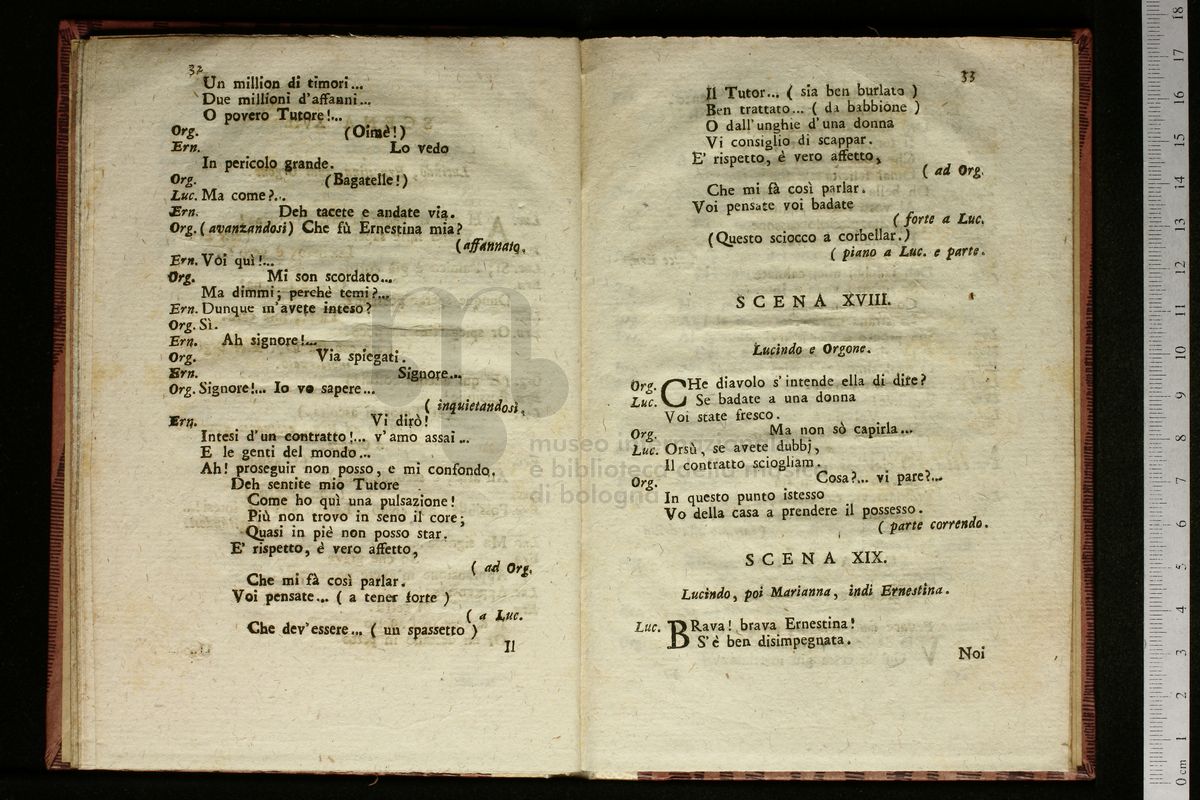 32
Un million di timori...
Due millioni d'affanni...
O povero Tutore!...
Org. (Oimè!)
Ern. Lo vedo
In pericolo grande.
Org. (Bagatelle!)
Luc. Ma come?...
Ern. Deh tacete e andate via.
Org. (avanzandosi) Che fù Ernestina mia?
(affannato.
Ern. Voi quì!...
Org. Mi son scordato...
Ma dimmi; perchè temi?...
Ern. Dunque m'avete inteso?
Org. Sì.
Ern. Ah signore!...
Org. Via spiegati.
Ern. Signore...
Org. Signore!... Io vo sapere...
( inquietandosi,
Ern. Vi dirò!
Intesi d'un contratto!... v'amo assai...
E le genti del mondo...
Ah! proseguir non posso, e mi confondo.
Deh sentite mio Tutore
Come ho quì una pulsazione!
Più non trovo in seno il core;
Quasi in piè non posso star.
E' rispetto, è vero affetto,
( ad Org.
Che mi fà così parlar.
Voi pensate... ( a tener forte )
( a Luc.
Che dev'essere... ( un spassetto )
Il
33
Il Tutor... ( sia ben burlato )
Ben trattato... ( da babbione )
O dall'unghie d'una donna
Vi consiglio di scappar.
E' rispetto, è vero affetto,
( ad Org.
Che mi fà così parlar.
Voi pensate voi badate
( forte a Luc.
(Questo sciocco a corbellar.)
( piano a Luc. e parte.
SCENA XVIII.
Lucindo e Orgone.
Org. CHe diavolo s'intende ella di dire?
Luc. Se badate a una donna
Voi state fresco.
Org. Ma non sò capirla...
Luc. Orsù, se avete dubbj,
Il contratto sciogliam.
Org. Cosa?... vi pare?...
In questo punto istesso
Vo della casa a prendere il possesso.
( parte correndo.
SCENA XIX.
Lucindo, poi Marianna, indi Ernestina.
Luc. BRava! brava Ernestina!
S'è ben disimpegnata.
Noi
museo internazionale
e biblioteca della musica
di bologna
0 cm 1 2 3 4 5 6 7 8 9 10 11 12 13 14 15 16 17 18